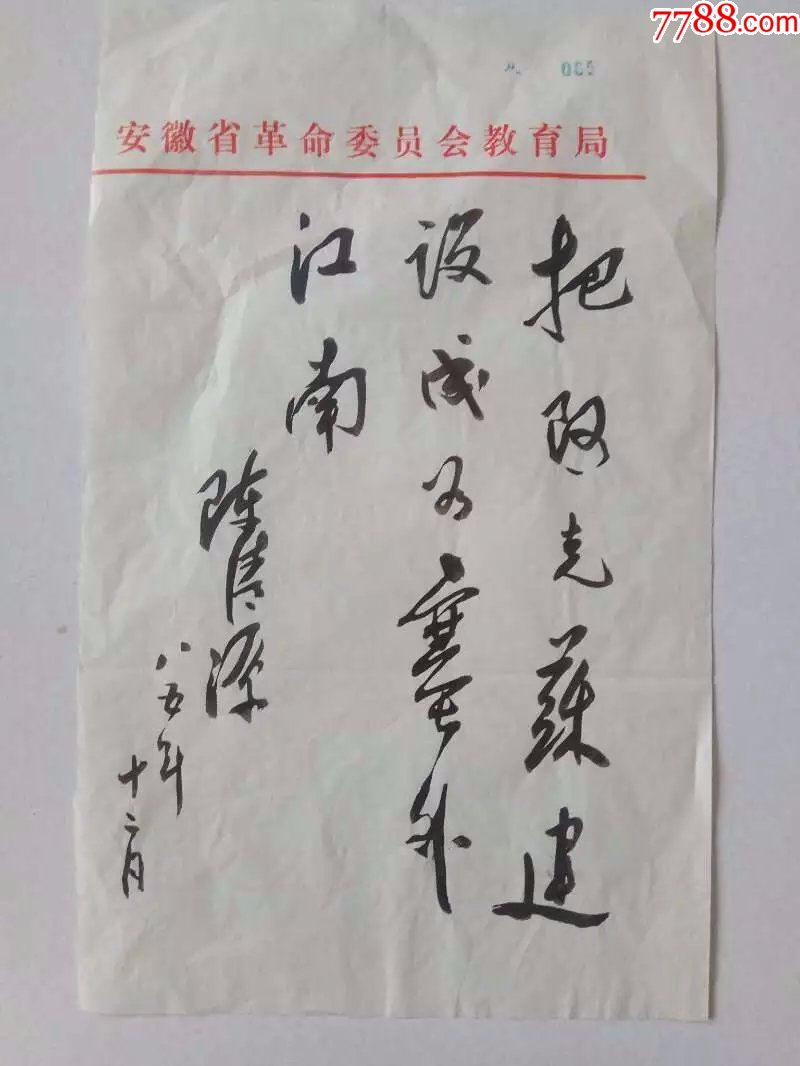 7788.com
安徽省革命委员会教育局
把阿克蘇建
设成为塞外
江南
陈清源
八五年
十二月